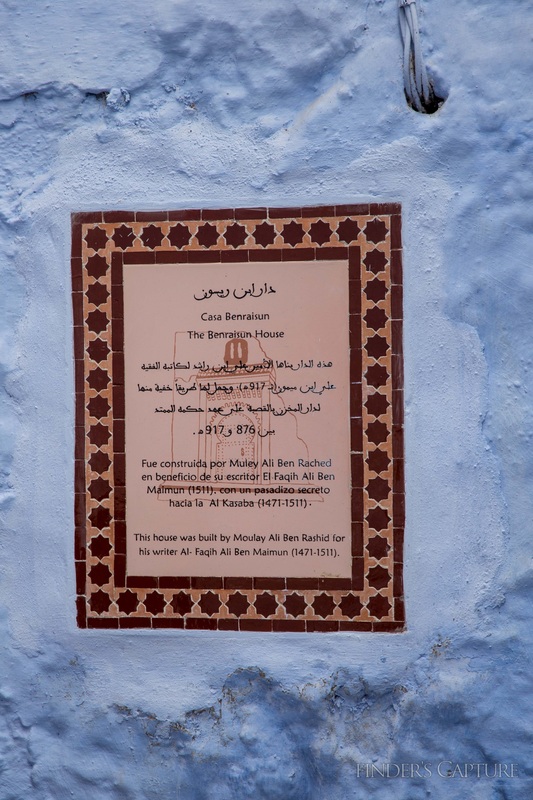 دار ابن ريسون
Casa Benraisun
The Benraisun House
هذه الدار بناها الأمير علي ابن راشد لكاتبه الفقيه
علي ابن ميمون (ت 917ه)، وجعل لها طريقا خفية منها
لدار المخزن بالقصبة على عهد حكمه الممتد
بين 876 و 917 ه.
Fue construida por Muley Ali Ben Rached
en beneficio de su escritor El Faqih Ali Ben
Maimun (1511), con un pasadizo secreto
hacia la Al Kasaba (1471-1511).
This house was built by Moulay Ali Ben Rashid for
his writer Al- Faqih Ali Ben Maimun (1471-1511).
FINDER'S CAPTURE